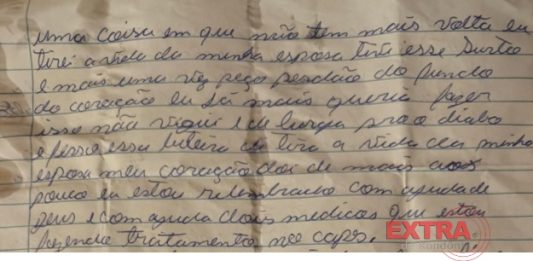 uma coisa em que não tem mais volta eu
tirei a vida da minha esposa tive esse Surto
e mais uma vez peço perdão do fundo
do coração eu Já mais queria fazer
isso não vigiei e de brexa pro o diabo
e fosse essa besteira de tira a vida da minha
esposa meu coração doi de mais aos
pouco eu estou relembrado com ajuda de
Deus e com ajuda dois medicos que estou
fazendo tratamento no caps.
EXTRA